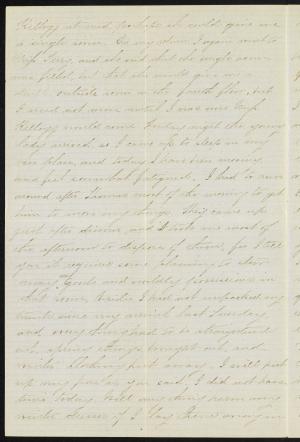 Kellogg returned, perhaps she could give me
a single room. So my when I again went to
Mrs. Terry, and she said that the single room
was filled, but that she would give me
outside room on the fourth floor, but
I need not move until I was sure Mrs.
Kellogg would come. Friday night the young
lady arrived, so I came up to sleep in my
new place, and today I have been moving
and feel somewhat fatigued. I had to run
around after Thomas most of the morning to get
him to move my things. They came up
just after dinner, and it took me most of
the afternoon to dispose of them, for I tell
you it requires some planning to stow
away goods and worldly possessions in
that room. Besides I had not unpacked my
trunk since my arrival last Tuesday
and everything had to be straightened
out, spring things brought out and
winter clothing put away. I will put
up my furs as you said, I did not have
time today. Will anything harm my
winter dresses if I lay them away in